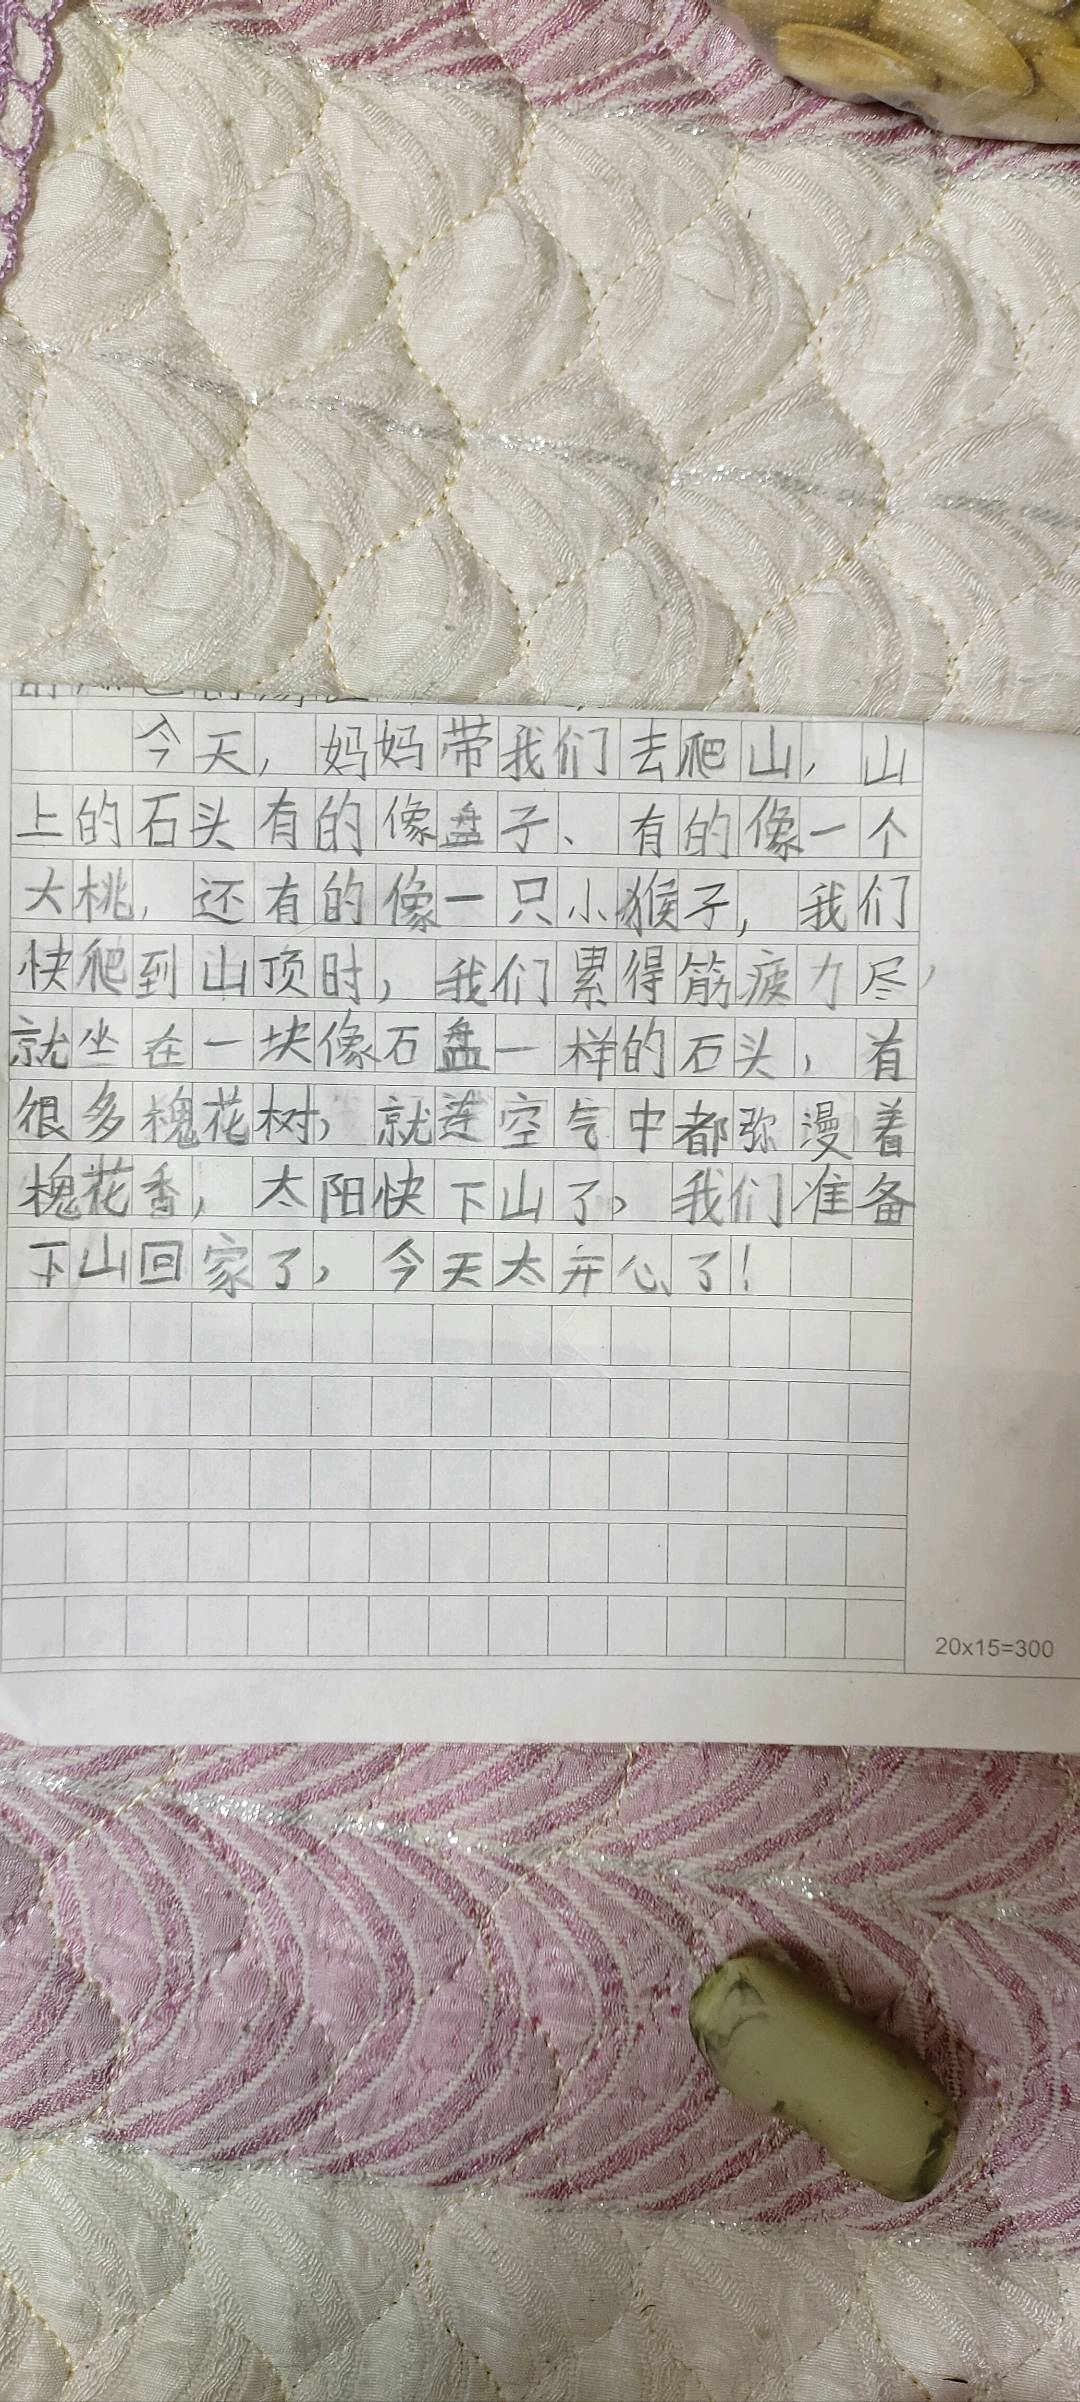 今天，妈妈带我们去爬山，山
上的石头有的像盘子、有的像一个
大桃，还有的像一只小猴子，我们
快爬到山顶时，我们累得筋疲力尽，
就坐在一块像石盘一样的石头，有
很多槐花树，就连空气中都弥漫着
槐花香，太阳快下山了，我们准备
下山回家了，今天太开心了！
20x15=300